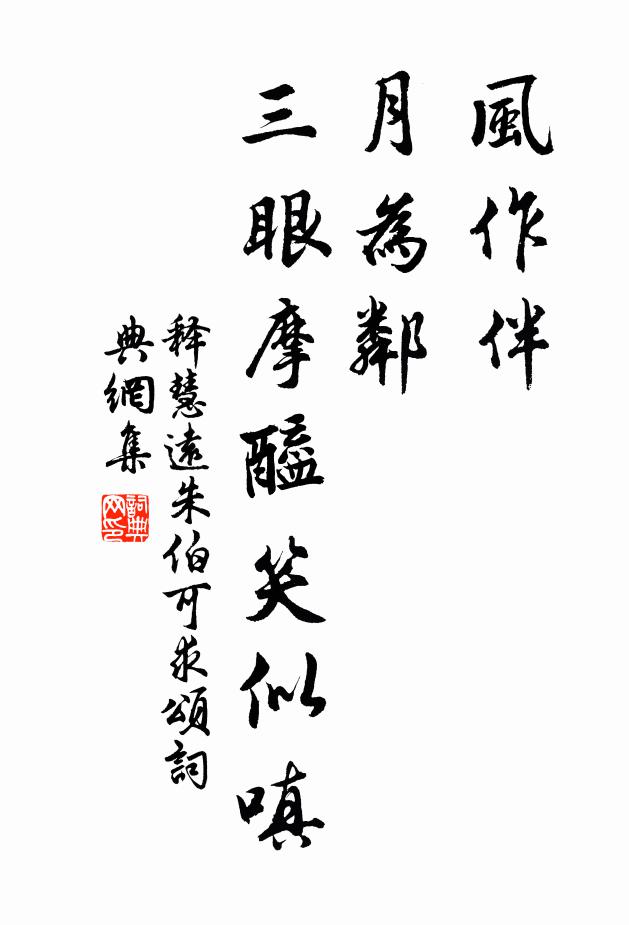 風作伴
月為鄰
三眼摩醯笑似嗔
释慧遠朱伯可求頌詞
典網集
詞典网印